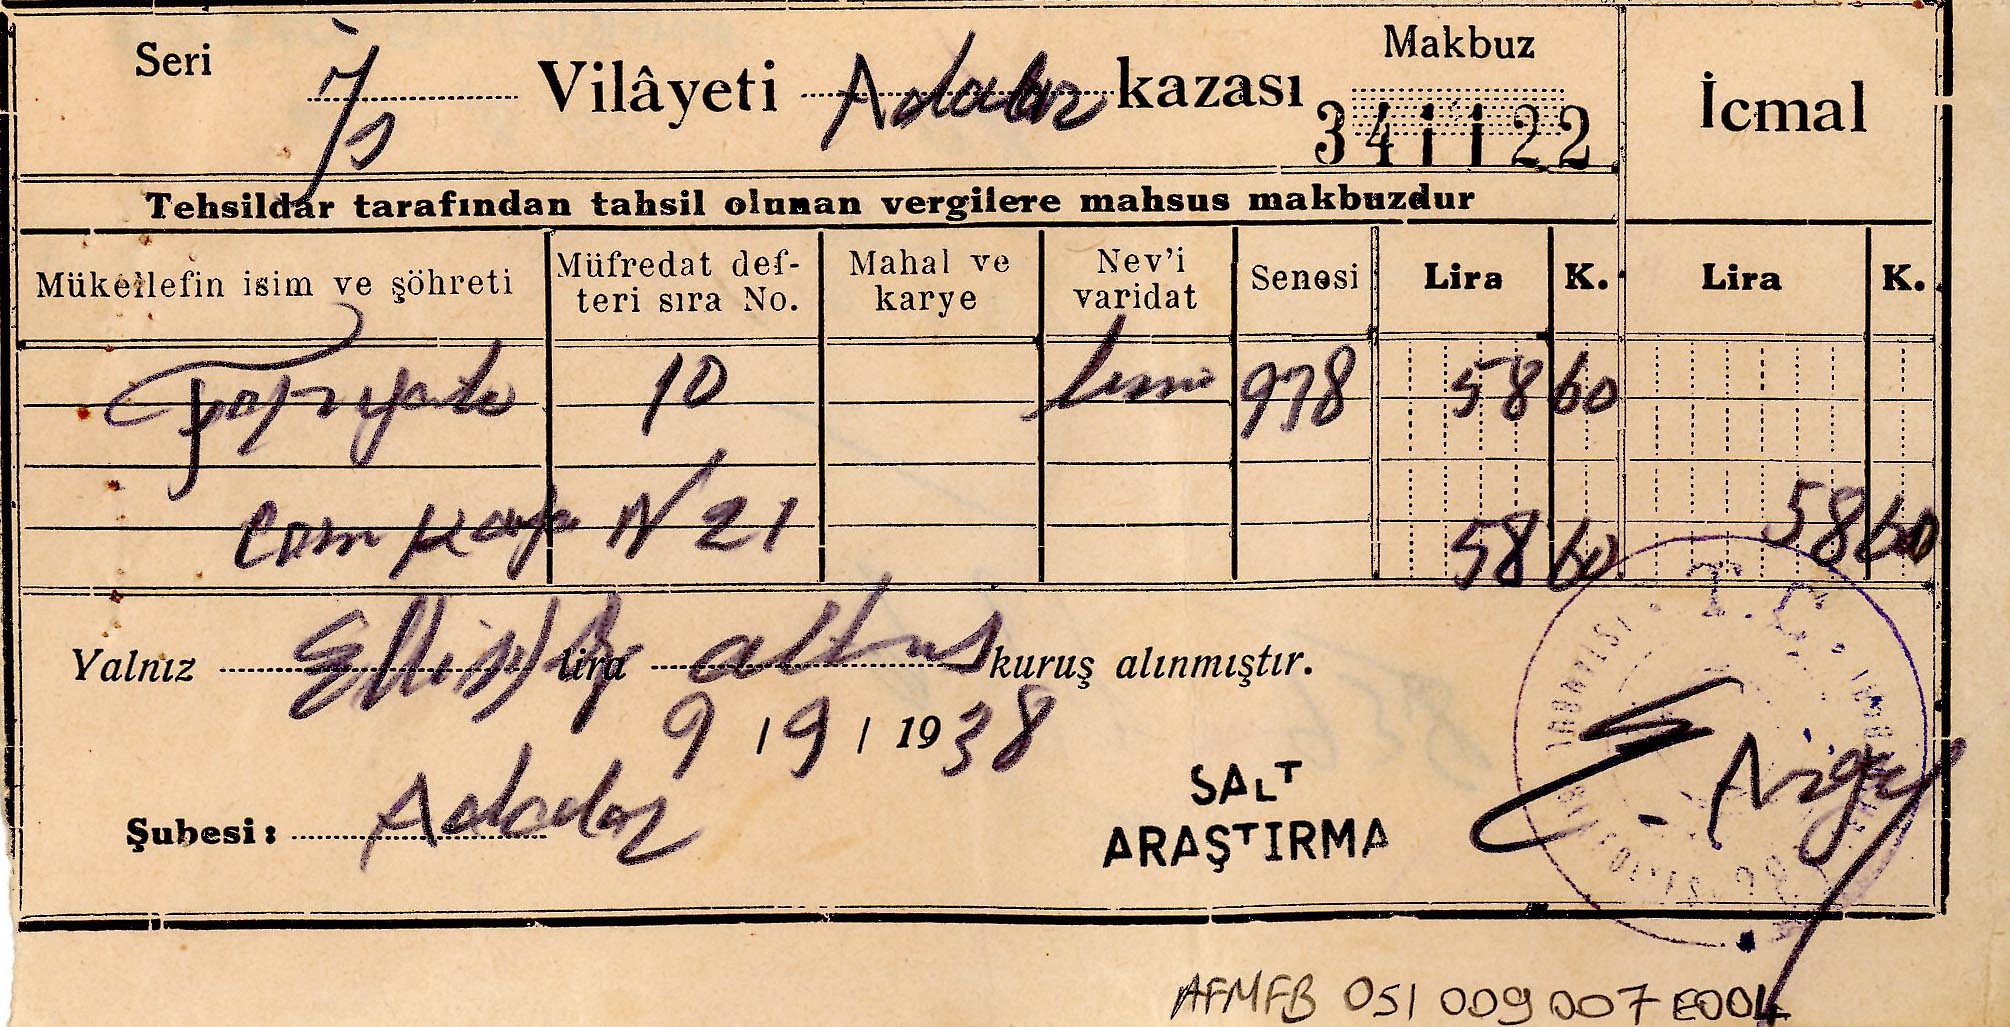 Seri İs Vilâyeti Adalar kazası
Makbuz
341122
İcmal
Tehsildar tarafından tahsil olunan vergilere mahsus makbuzdur
Mükellefin isim ve şöhreti
Müfredat defteri sıra No.
Mahal ve karye
Nev'i varidat
Senesi
Lira
K.
Lira
K.
10
978
58 60
N 21
58 60
58 60
Yalnız Ellisekiz lira altmış kuruş alınmıştır.
9 / 9 / 1938
Şubesi: Adalar
T.C.
SALT
ARAŞTIRMA
AFMFB 051 009 007 E004